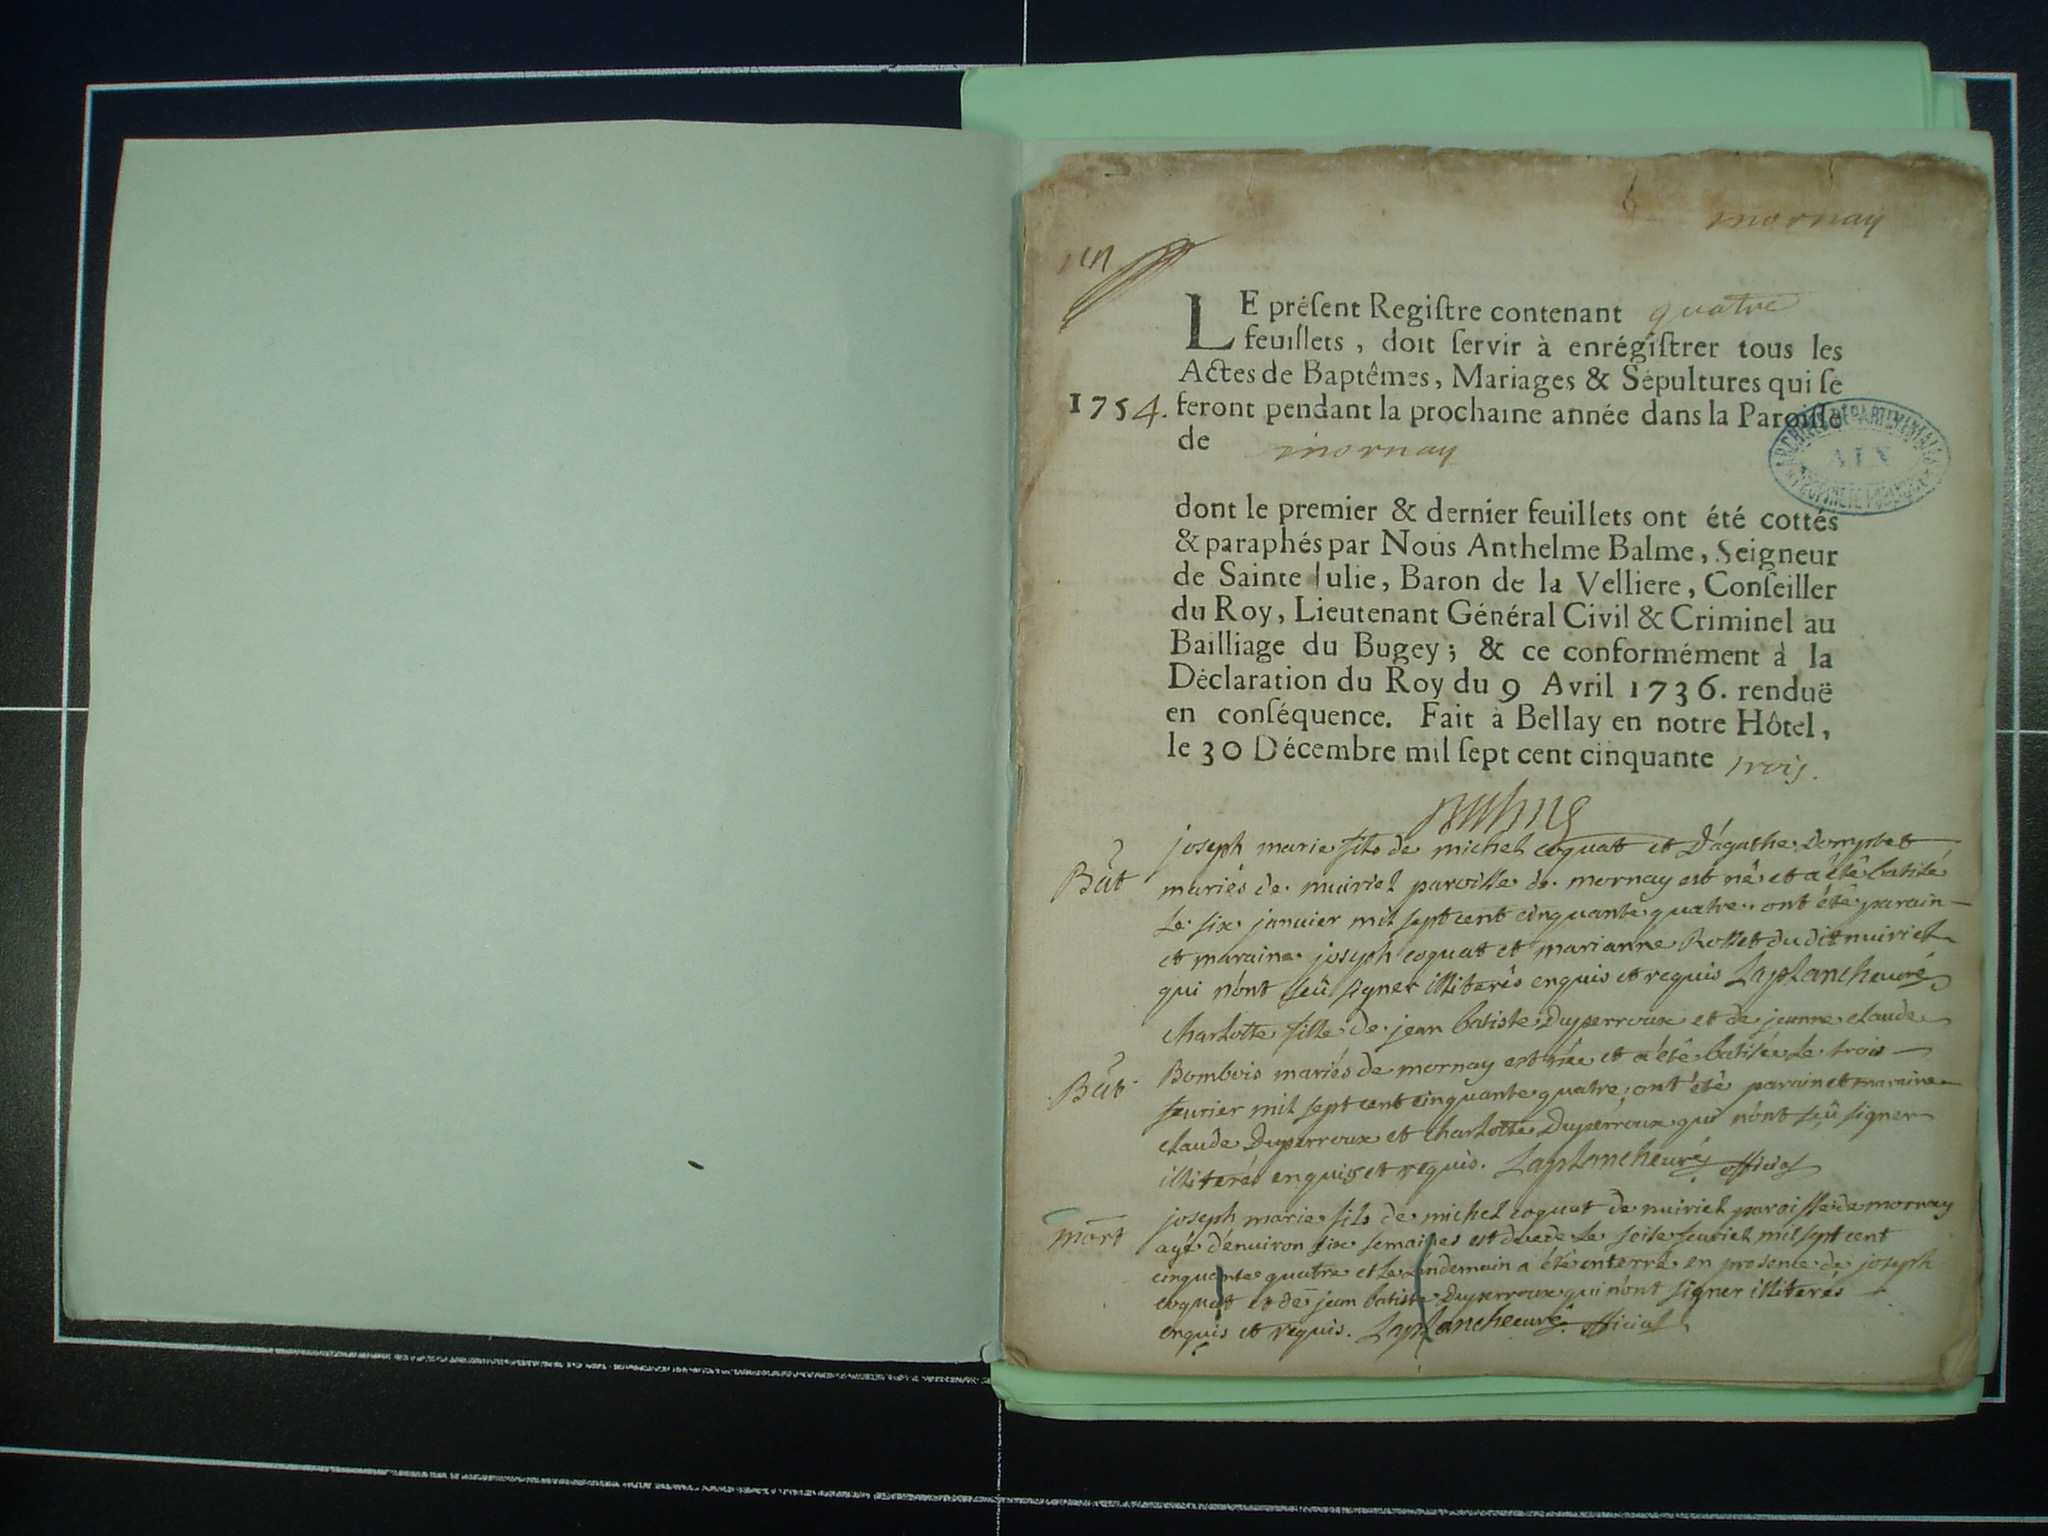 mornay
LE préſent Regiſtre contenant quatre
feuillets, doit ſervir à enrégiſtrer tous les
Actes de Baptêmes, Mariages & Sépultures qui ſe
1754. feront pendant la prochaine année dans la Paroiſſe
de mornay
ARCHIVES DÉPARTEMENTALES
AIN
dont le premier & dernier feuillets ont été cottés
& paraphés par Nous Anthelme Balme, Seigneur
de Sainte Julie, Baron de la Velliere, Conſeiller
du Roy, Lieutenant Général Civil & Criminel au
Bailliage du Bugey; & ce conformément à la
Déclaration du Roy du 9 Avril 1736. renduë
en conſéquence. Fait à Bellay en notre Hôtel,
le 30 Décembre mil ſept cent cinquante trois.
joseph marie fils de michel coquat et D'agathe
Bat mariés de nuiriel paroisse de mornay est né et a été batisé
Le six janvier mil sept cent cinquante quatre. ont été parain
et maraine joseph coquat et marianne Rosset du dit nuiriel
qui n'ont seû signer illiterés enquis et requis Laplanche curé
charlotte fille de jean batiste Duperroux et de jeanne claude
Bat Bombois mariés de mornay est née et a été batisée Le trois
fevrier mil sept cent cinquante quatre, ont été parain et maraine
claude Duperroux et charlotte Duperroux qui n'ont seû signer
illiterés enquis et requis. Laplanche curé official
joseph marie fils de michel coquat de nuiriel paroisse de mornay
mort agé d'environ six semaines est decede Le seise fevriel mil sept cent
cinquante quatre et Le Lendemain a été enterré en presence de joseph
coquat et de jean batiste Duperroux qui n'ont signer illiterés
enquis et requis. Laplanche curé official